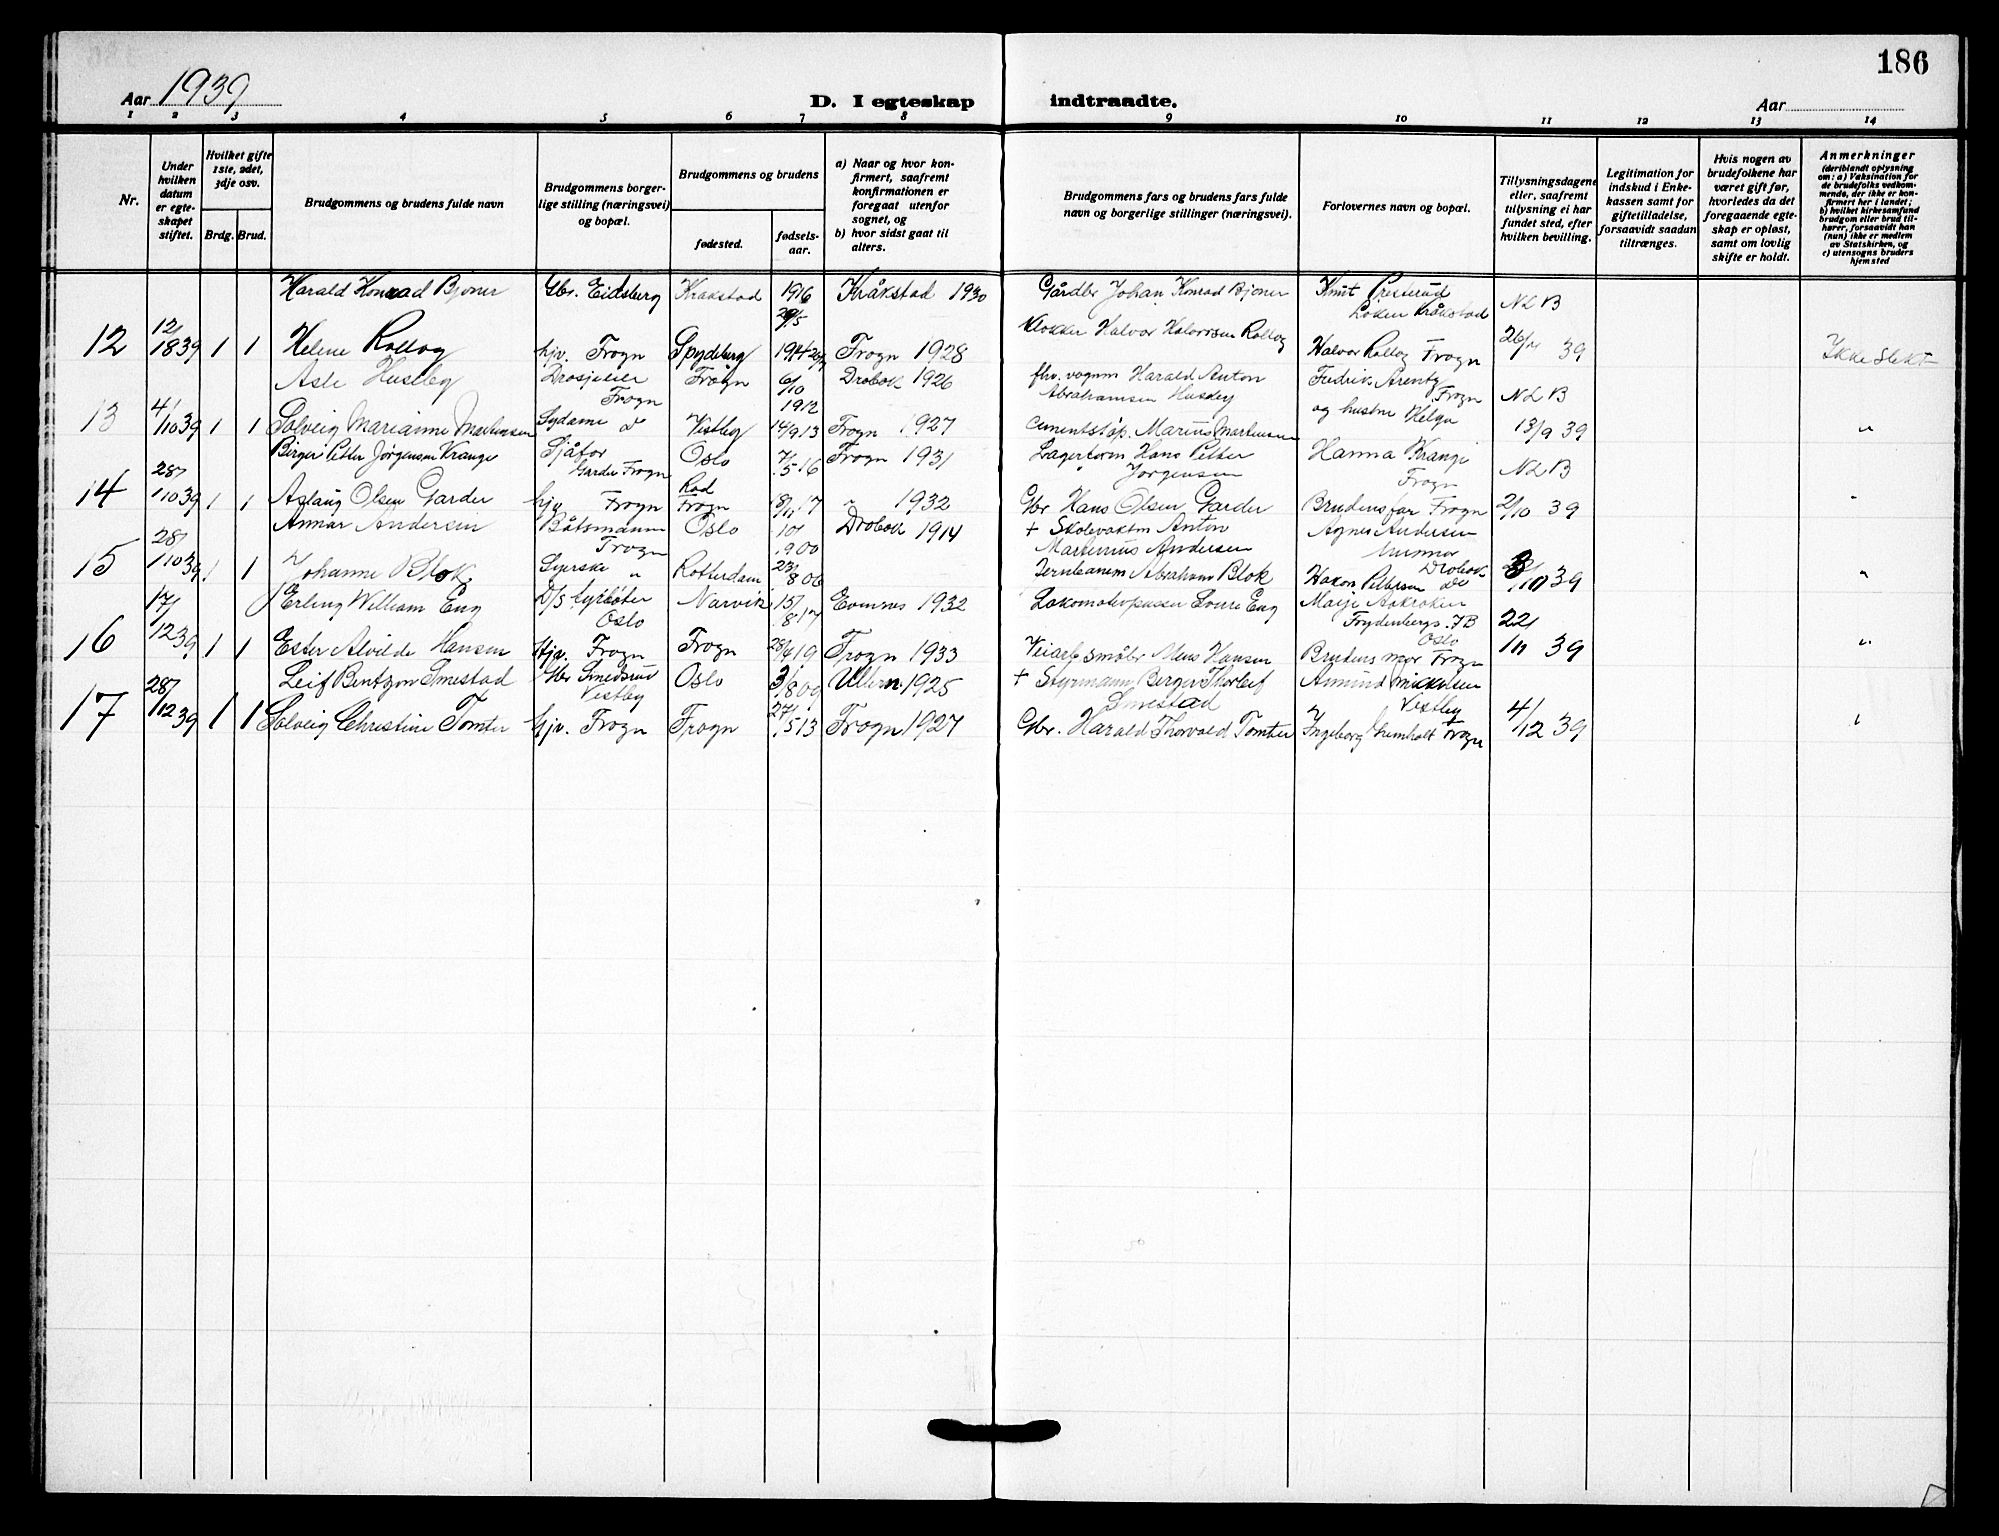 186
Aar 1939
D. I egteskap indtraadte.
Aar
1 2 3 4 5 6 7 8 9 10 11 12 13 14
Nr.
Under hvilken datum er egteskapet stiftet.
Hvilket gifte 1ste, 2det, 3dje osv.
Brdg. Brud.
Brudgommens og brudens fulde navn
Brudgommens borgerlige stilling (næringsvei) og bopæl.
Brudgommens og brudens
fødested.
fødselsaar.
a) Naar og hvor konfirmert, saafremt konfirmationen er foregaat utenfor sognet, og
b) hvor sidst gaat til alters.
Brudgommens fars og brudens fars fulde navn og borgerlige stillinger (næringsvei).
Forlovernes navn og bopæl.
Tillysningsdagene eller, saafremt tillysning ei har fundet sted, efter hvilken bevilling.
Legitimation for indskud i Enkekassen samt for giftetilladelse, forsaavidt saadan tiltrænges.
Hvis nogen av brudefolkene har været gift før, hvorledes da det foregaaende egteskap er opløst, samt om lovlig skifte er holdt.
Anmerkninger
(deriblandt oplysning om: a) Vaksination for de brudefolks vedkommende, der ikke er konfirmert her i landet; b) hvilket kirkesamfund brudgom eller brud tilhører, forsaavidt han (hun) ikke er medlem av Statskirken, og c) utensogns bruders hjemsted
Harald Konrad Bjoner Gbr. Eidsberg Kråkstad 1916 29/5 Kråkstad 1930 Gårdbr Johan Konrad Bjoner Knut Presterud Løken Kråkstad NLB
12 12/ 18 39 1 1 Helene Rollag hjv. Frogn Spydeberg 1914 Frogn 1928 Klokker Halvor Halvorsen Rollag Halvor Rollag Frogn 26/ 39 Ikke slekt
Asle Husebg Frogn Frogn 6/10 1912 Drøbak 1926 Harald Anton Abrahamsen Husebg Fredrik Arentz Frogn NLB
13 4/ /10 39 1 1 Solveig Marianne Martinsen Sydame do Vestby 14/9 13 Frogn 1927 Cementstøp. Marius Martinsen og hustru Helga 13/9 39 "
Birger Petter Jørgensen Krange Sjåfør Garder Frogn Oslo 7/5 16 Frogn 1931 Lagerform Hans Petter Jørgensen Hanna Krange Frogn NLB
14 28/ /10 39 1 1 Aslaug Olsen Garder hjv Frogn Frogn 17 " 1932 Gbr Hans Olsen Garder Brudens far Frogn 2/10 39 "
Annar Andersen Båtsmann Frogn Oslo 10/ 9 00 Drøbak 1914 + Skolevaktm Anton Martinius Andersen Agnes Andersen Drøbak
15 28/ /10 39 1 1 Johanne Blok Syerske " Rotterdam 23/8 06 Jernbanem Abraham Blok Håkon Pettersen do /10 39 "
Erling William Eng D/S fyrbøter Oslo Narvik 15/8 17 Evenes 1932 Eng Oslo
16 17/ /12 39 1 1 Ester Alvilde Hansen Hjv. Frogn Frogn 28/4 19 Frogn 1933 Hansen Brudens mor Frogn 22/ /11 39 "
Leif Bentzon Smestad Gbr Smedsrud Vestby Oslo 3/8 09 Ullern 1925 + Styrmann Birger Thorleif Smestad Mikkelsen Vestby
17 28/ /12 39 1 1 Solveig Christine Tomter hjv. Frogn Frogn 27/5 13 Frogn 1927 Gbr. Harald Thorvald Tomter Ingeborg Frogn 4/ /12 39 "